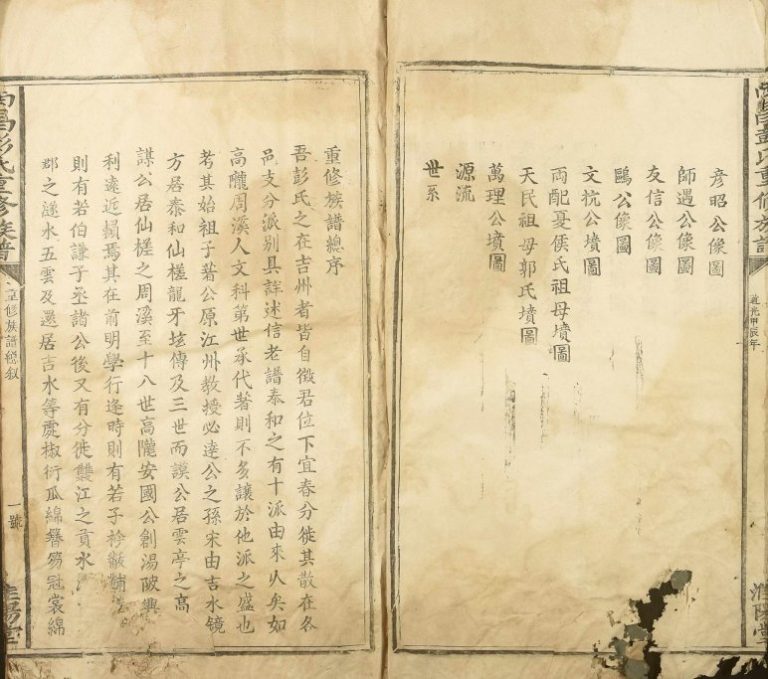 彦昭公像圖
師遇公像圖
友信公像圖
鷗公像圖
文杭公墳圖
兩配憂侯氏祖母墳圖
天民祖母郭氏墳圖
萬理公墳圖
源流
世系
道光甲辰年
重修族譜總序
吾彭氏之在吉州者皆自徵君位下宜春分徙其散在各
邑支分派别具詳述信老譜泰和之有十派由來久矣如
高隴周溪人文科第世承代著則不多讓於他派之盛也
考其始祖子蕃公原江州教授必達公之孫宋由吉水镜
方居泰和仙槎龍牙坑傳及三世而謨公居雲亭之高
謀公居仙槎之周溪至十八世高隴安國公創湯陂興
利遠近頼焉其在前明學行逢時則有若子
則有若伯謙子丞諸公後又有分徙龔江之貢水
郡之遂水五雲及還居吉水等處椒衍瓜綿簪笏冠裳綿
南昌彭氏重修族譜
重修族譜總叙
一號